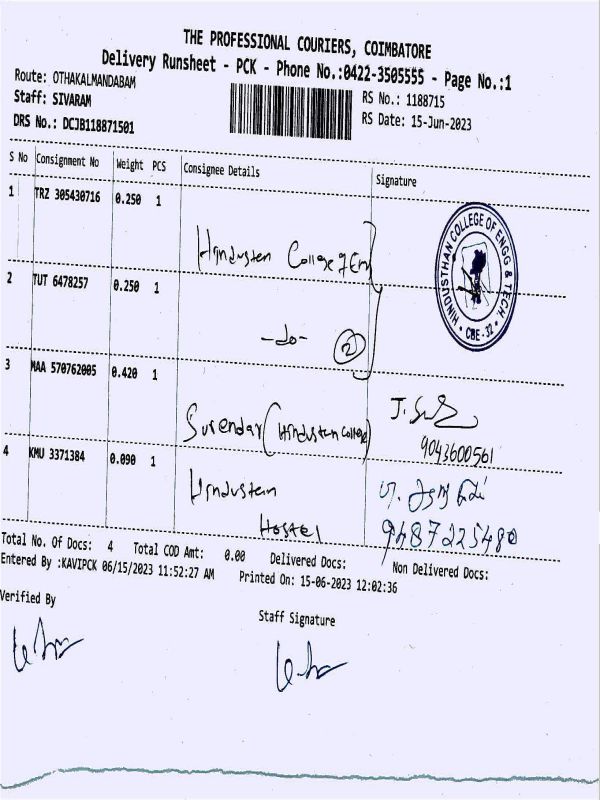 THE PROFESSIONAL COURIERS, COIMBATORE
Delivery Runsheet - PCK - Phone No.:0422-3505555 - Page No.:1
Route: OTHAKALMANDABAM
Staff: SIVARAM
DRS No.: DCJB118871501
RS No.: 1188715
RS Date: 15-Jun-2023
S No Consignment No Weight PCS Consignee Details Signature
1 TRZ 305430716 0.250 1
Hindusten College of Eng
HINDUSTHAN COLLEGE OF ENGG & TECH.
CBE-32
2 TUT 6478257 0.250 1
-do- 2
3 MAA 570762005 0.420 1
Surendar (Hindustan College)
9043600561
4 KMU 3371384 0.090 1
Hindustan
Hostel
9487225480
Total No. Of Docs: 4 Total COD Amt: 0.00 Delivered Docs: Non Delivered Docs:
Entered By :KAVIPCK 06/15/2023 11:52:27 AM Printed On: 15-06-2023 12:02:36
Verified By
Staff Signature